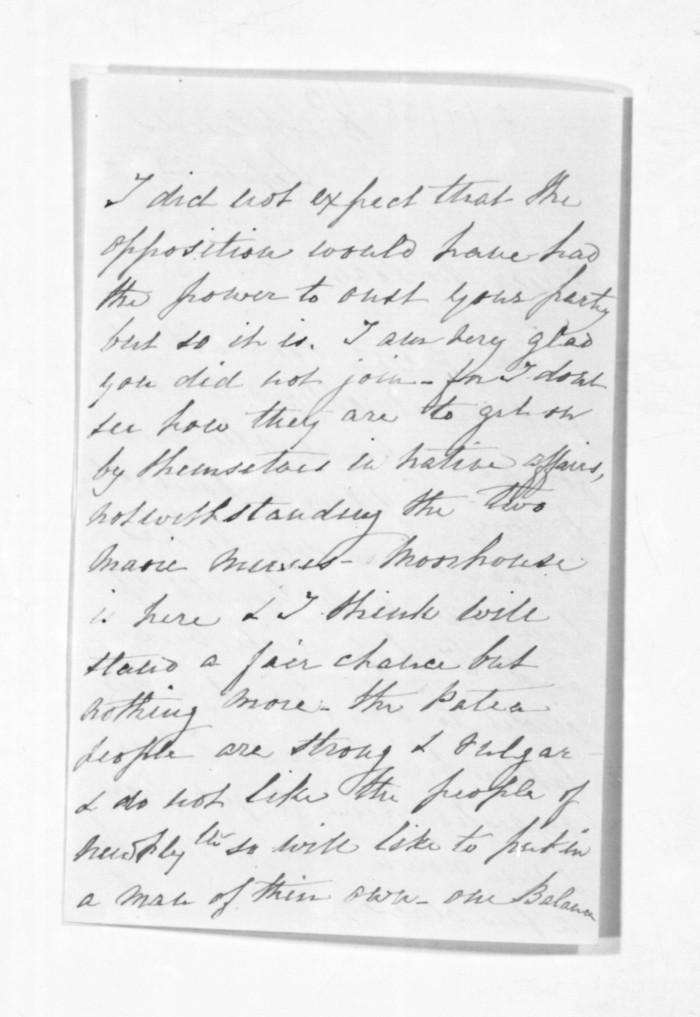 I did not expect that the
opposition would have had
the power to oust your party
but so it is. I am very glad
you did not join - for I dont
see how they are to get on
by themselves in native affairs,
notwithstanding the two
Maori - Moorhouse
is here & I think will
stand a fair chance but
nothing more - the Patea
people are strong & vulgar
& do not like the people of
New Ply th so will like to put in
a man of their own - one